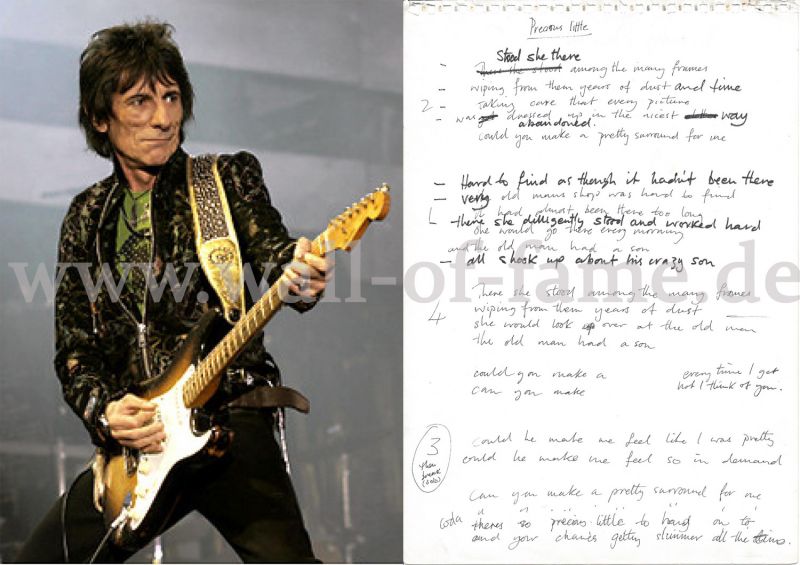 Precious little
Stood she there
- There she stood among the many frames
- wiping from them years of dust and time
2 - Taking care that every picture
- was dressed up in the nicest way
abandoned.
could you make a pretty surround for me
- Hard to find as though it hadn't been there
- very old mans shop was hard to find
it had almost been there too long
- there she dilligently stood and worked hard
she would go there every morning
and the old man had a son
- all shook up about his crazy son
www.wall-of-fame.de
There she stood among the many frames
4 wiping from them years of dust
she would look up over at the old man
the old man had a son
could you make a every time I get
can you make hot I think of you.
3 could he make me feel like I was pretty
could he make me feel so in demand
break
(solo)
Can you make a pretty surround for me
coda theres so precious little to hang on to
and your chances getting slimmer all the time.